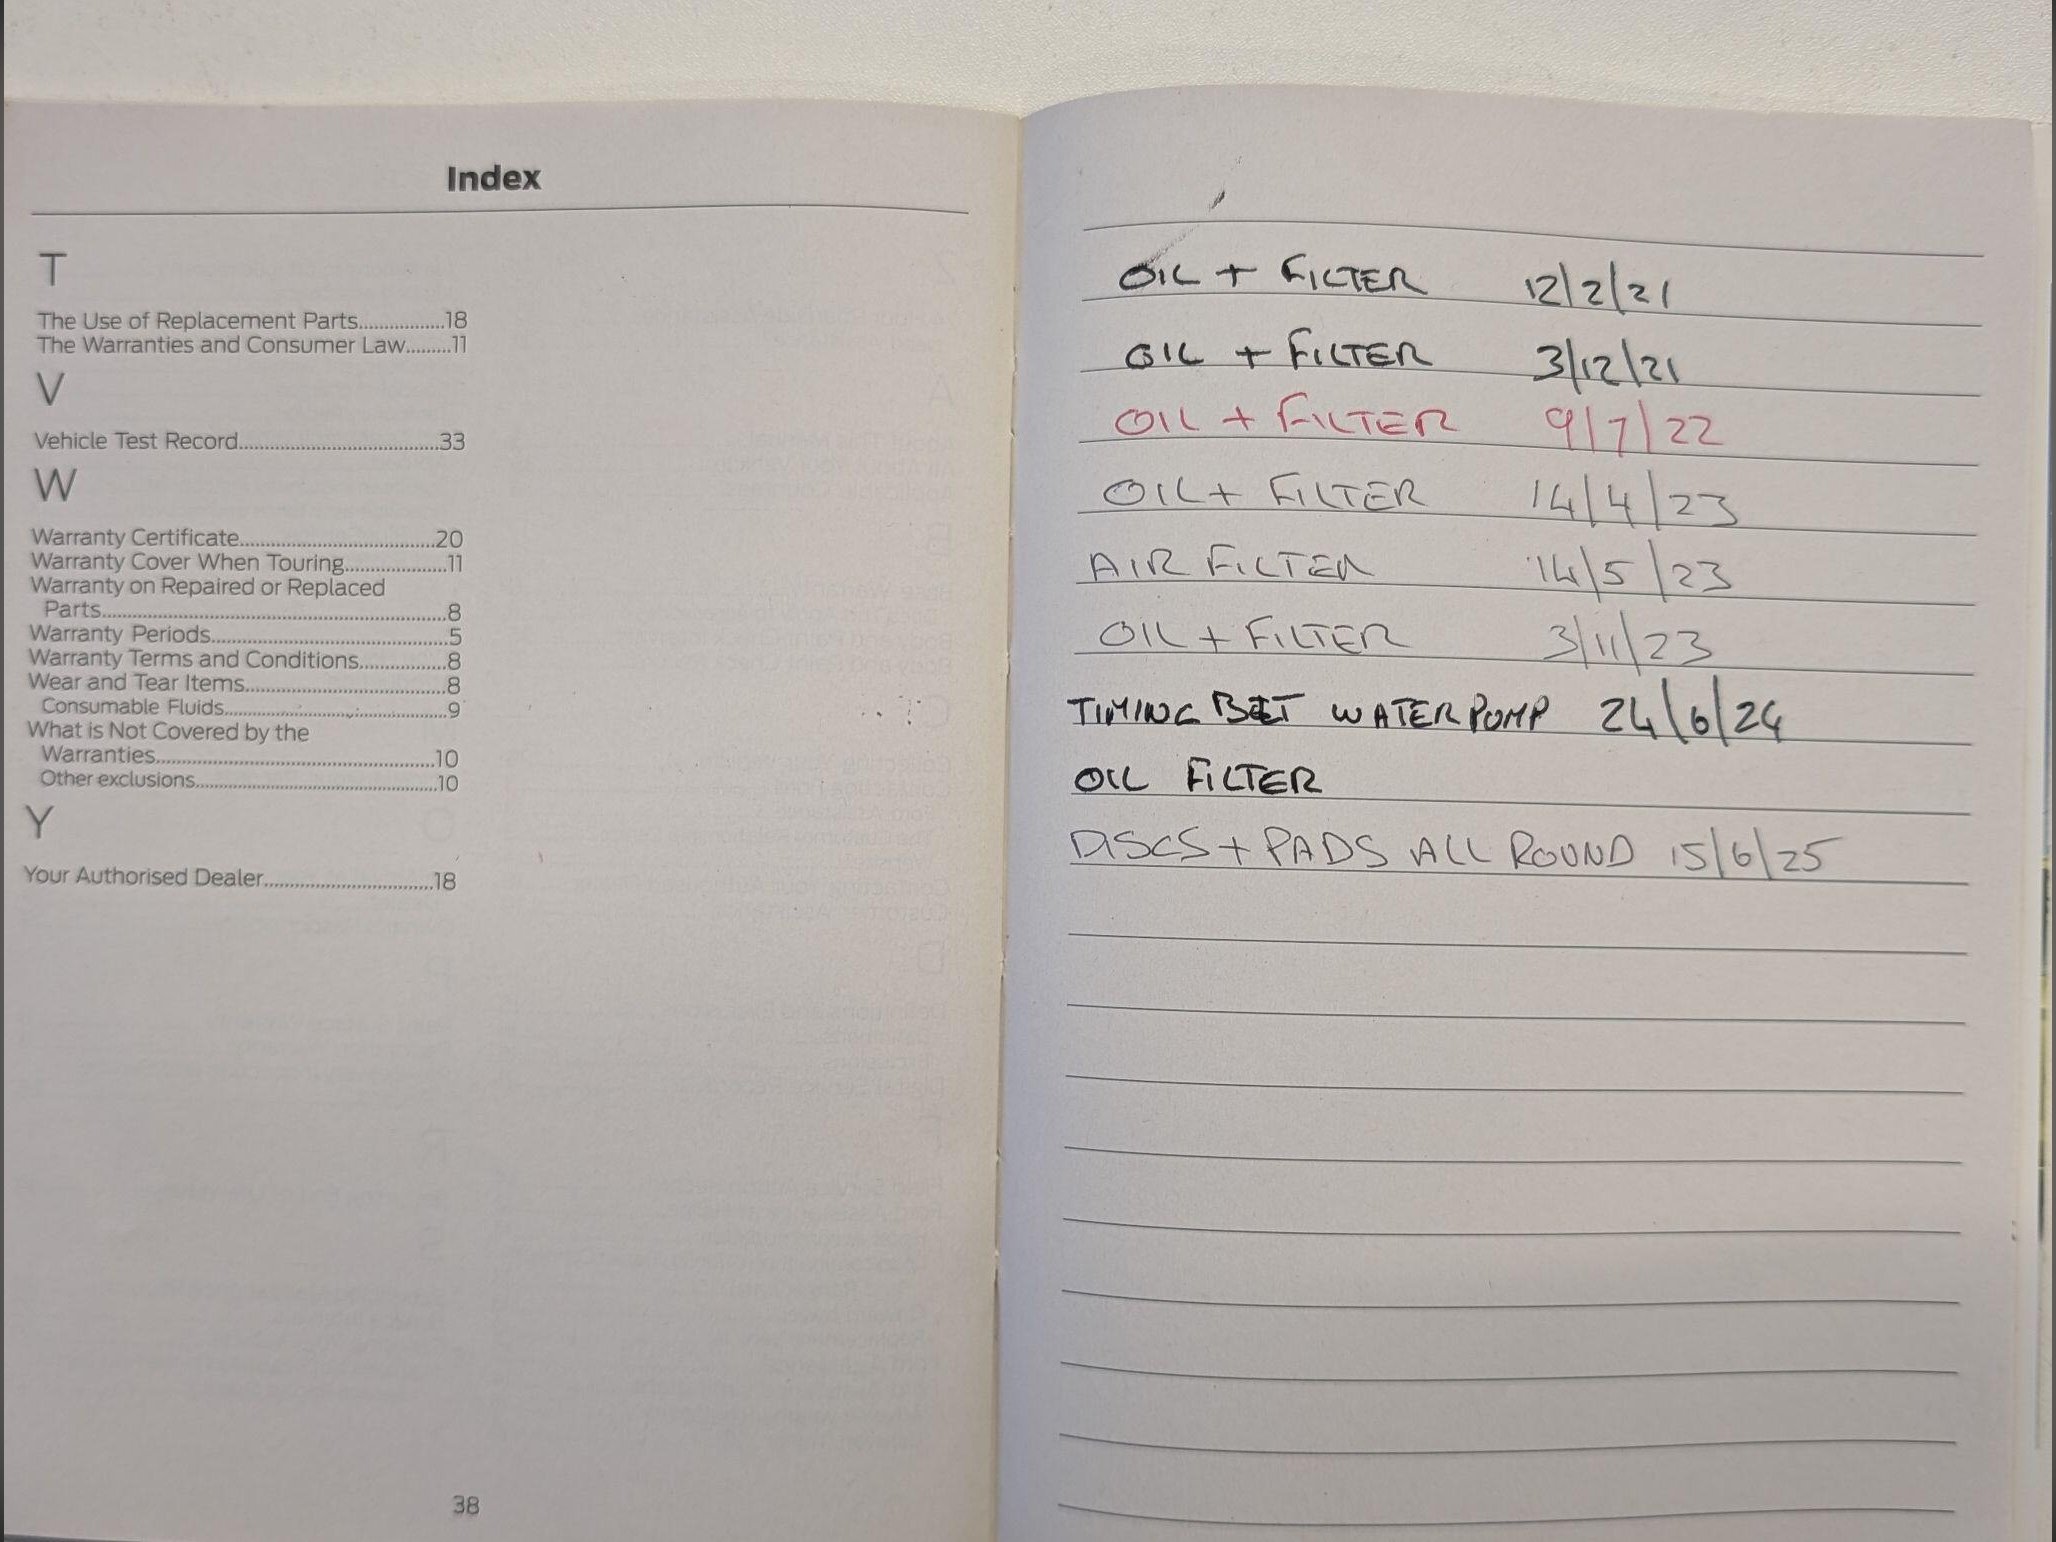 Index
T
The Use of Replacement Parts.................18
The Warranties and Consumer Law.........11
V
Vehicle Test Record.....................................33
W
Warranty Certificate....................................20
Warranty Cover When Touring...................11
Warranty on Repaired or Replaced
Parts...............................................................8
Warranty Periods...........................................5
Warranty Terms and Conditions................8
Wear and Tear Items.....................................8
Consumable Fluids.........................................9
What is Not Covered by the
Warranties....................................................10
Other exclusions............................................10
Y
Your Authorised Dealer...............................18
38
OIL + FILTER 12/2/21
OIL + FILTER 3/12/21
OIL + FILTER 9/7/22
OIL + FILTER 14/4/23
AIR FILTER 14/5/23
OIL + FILTER 3/11/23
TIMING BELT WATER PUMP 24/6/24
OIL FILTER
DISCS + PADS ALL ROUND 15/6/25